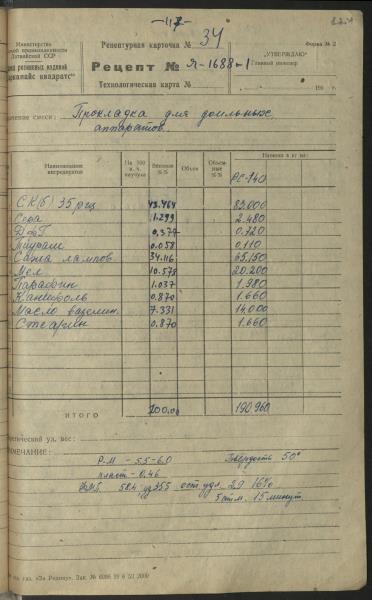 — 117 —
Министерство
промышленности
Латвийской ССР
Рецептурная карточка № 34
Форма № 2
резиновых изделий
квадратс"
„УТВЕРЖДАЮ"
Рецепт № Я-1688-1
Главный инженер
Технологическая карта №
195 г.
смеси: Прокладка для доильных
аппаратов.
Наименование ингредиентов
На 100 в. ч. каучука
Весовые %%
Объем
Объемные %%
Навеска в кг на:
РС-140
СК(б) 35 рщ 43.464 83.000
Сера 1.299 2.480
ДФГ 0.377 0.720
Тиурам 0.058 0.110
Сажа лампов. 34.116 65.150
Мел 10.578 20.200
Парафин 1.037 1.980
Канифоль 0.870 1.660
Масло вазелин. 7.331 14.000
Стеарин 0.870 1.660
ИТОГО 100.00 190.960
уд. вес:
Р.М - 55-60 Твердость 50°
пласт - 0.46
уд 355 ост удл. 29 16%
5 атм. 15 минут
газ. „За Родину". Зак. №